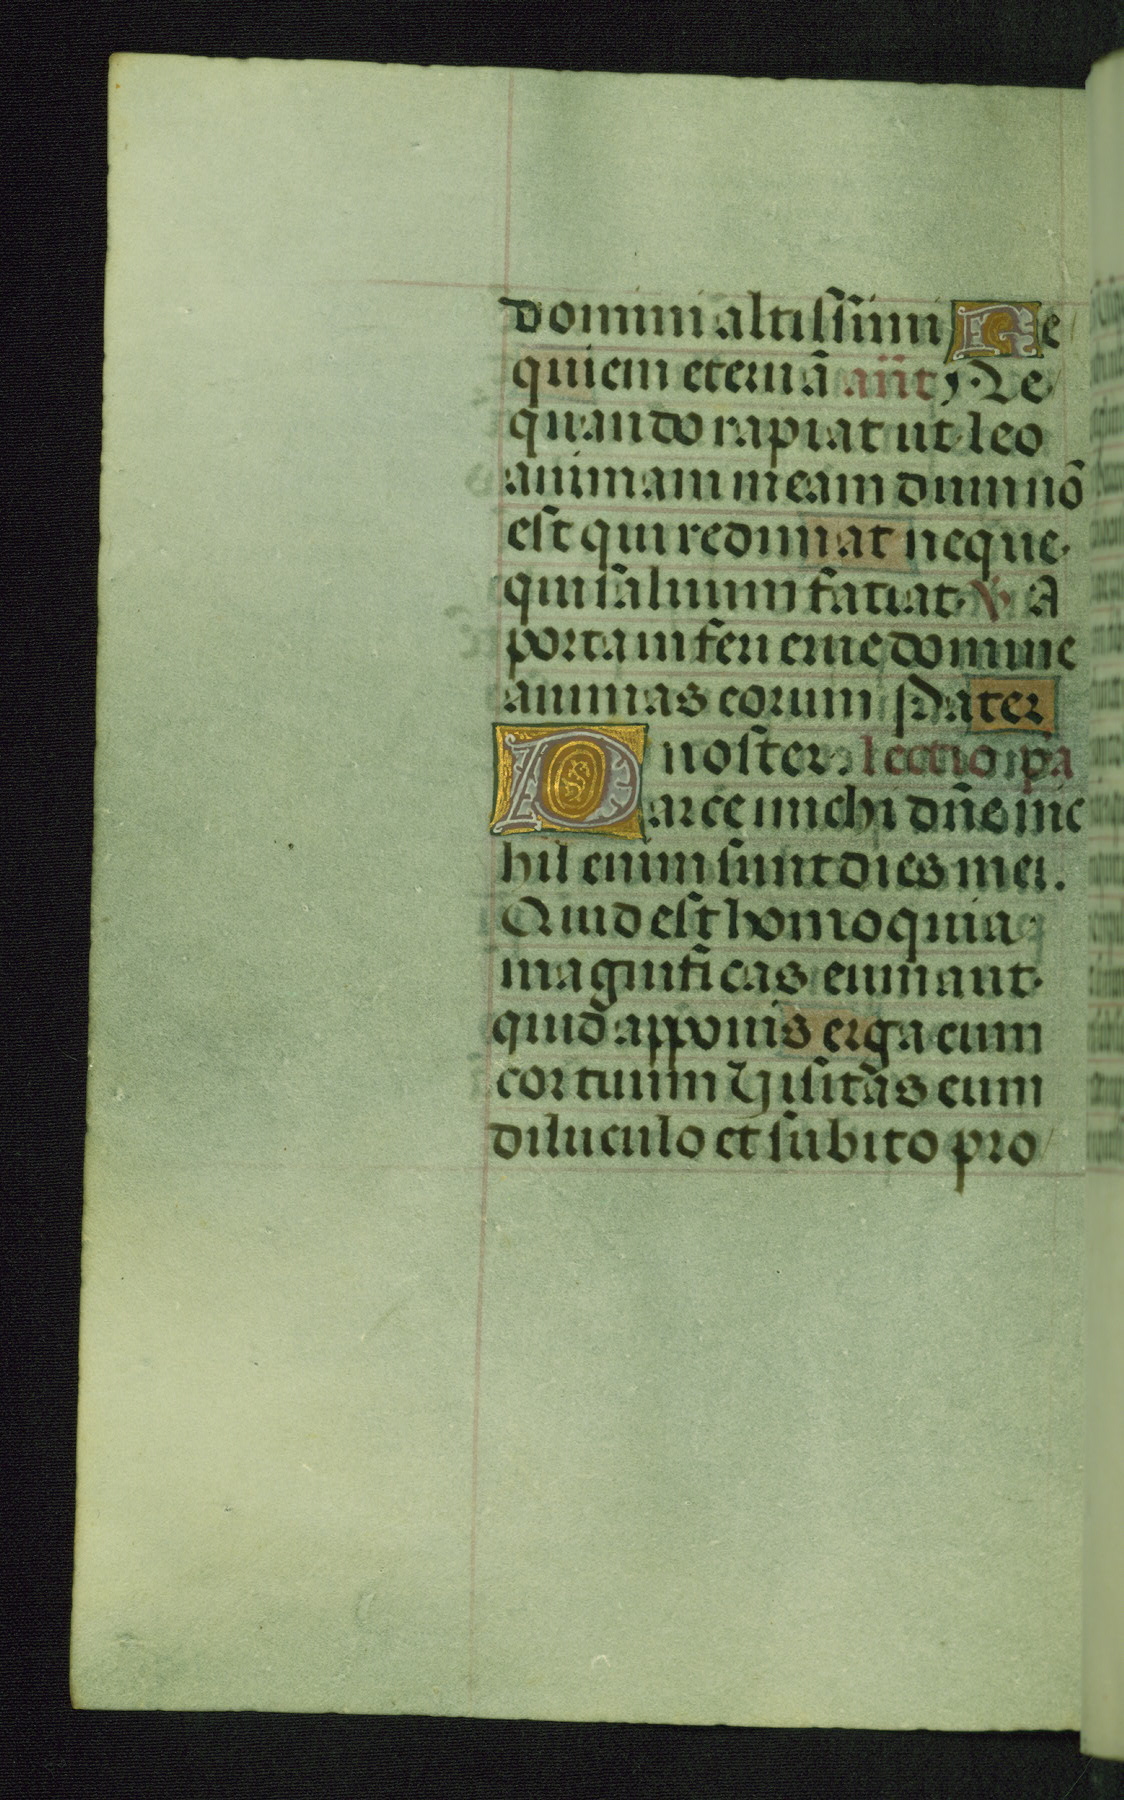 domini altissimi Re
quiem eternā añt. Ne
quando rapiat ut leo
animam meam dum nō
est qui redimat neque
qui saluum fatiat. V. A
porta inferi erue domine
animas eorum Pater
noster. lectio pa
Parce michi dñe nic
hil enim sunt dies mei.
Quid est homo quia
magnificas eum aut
quid apponis erga eum
cor tuum Visitas eum
diluculo et subito pro